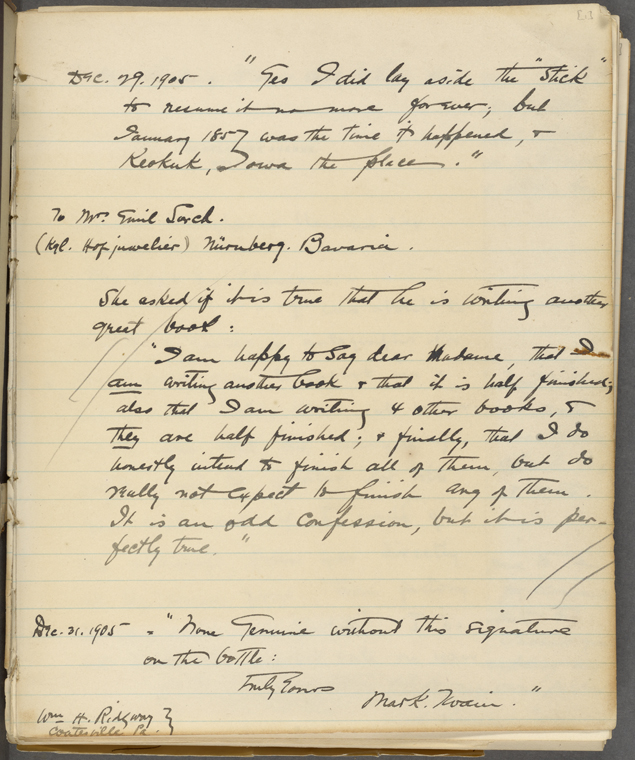 Dec. 29. 1905. "Yes I did lay aside the "Stick"
to resume it no more forever; but
January 1857 was the time it happened, &
Keokuk, Iowa the place."
To Mr. Emil
(Kgl. Hofjuwelier) Nürnberg. Bavaria.
She asked if it is true that he is writing another
great book:
"I am happy to say dear Madame, that I
am writing another book & that it is half finished;
also that I am writing 4 other books, &
they are half finished; & finally, that I do
honestly intend to finish all of them, but do
really not expect to finish any of them.
It is an odd confession, but it is per-
fectly true."
Dec. 31. 1905 - "None Genuine without this signature
on the bottle:
Truly Yours
Mark Twain."
Wm H. Ridgway }
Coatesville Pa.